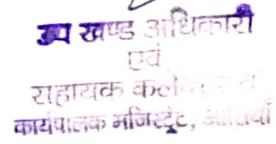 उप खण्ड अधिकारी
एवं
सहायक
कार्यपालक मजिस्ट्रेट,